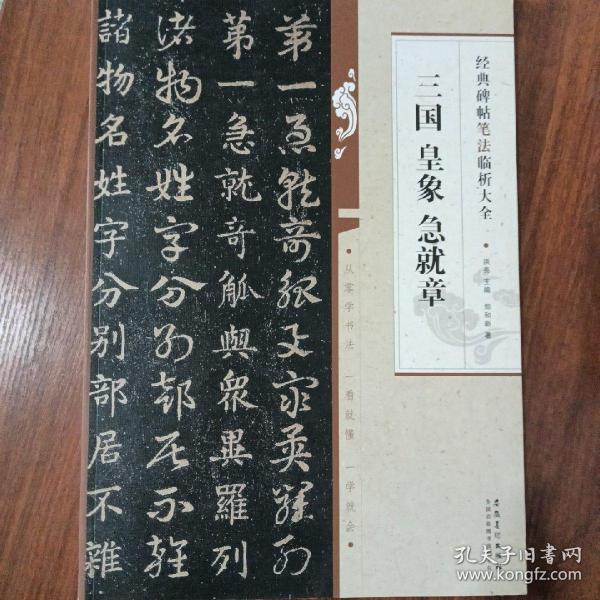 第一急就奇觚與眾異羅列
第一急就奇觚與眾異羅列
諸物名姓字分别部居不雜
諸物名姓字分别部居不雜
经典碑帖笔法临析大全
三国 皇象 急就章
洪亮 主编
•从零学书法 一看就懂 一学就会•
孔夫子旧书网
www.kongfz.com